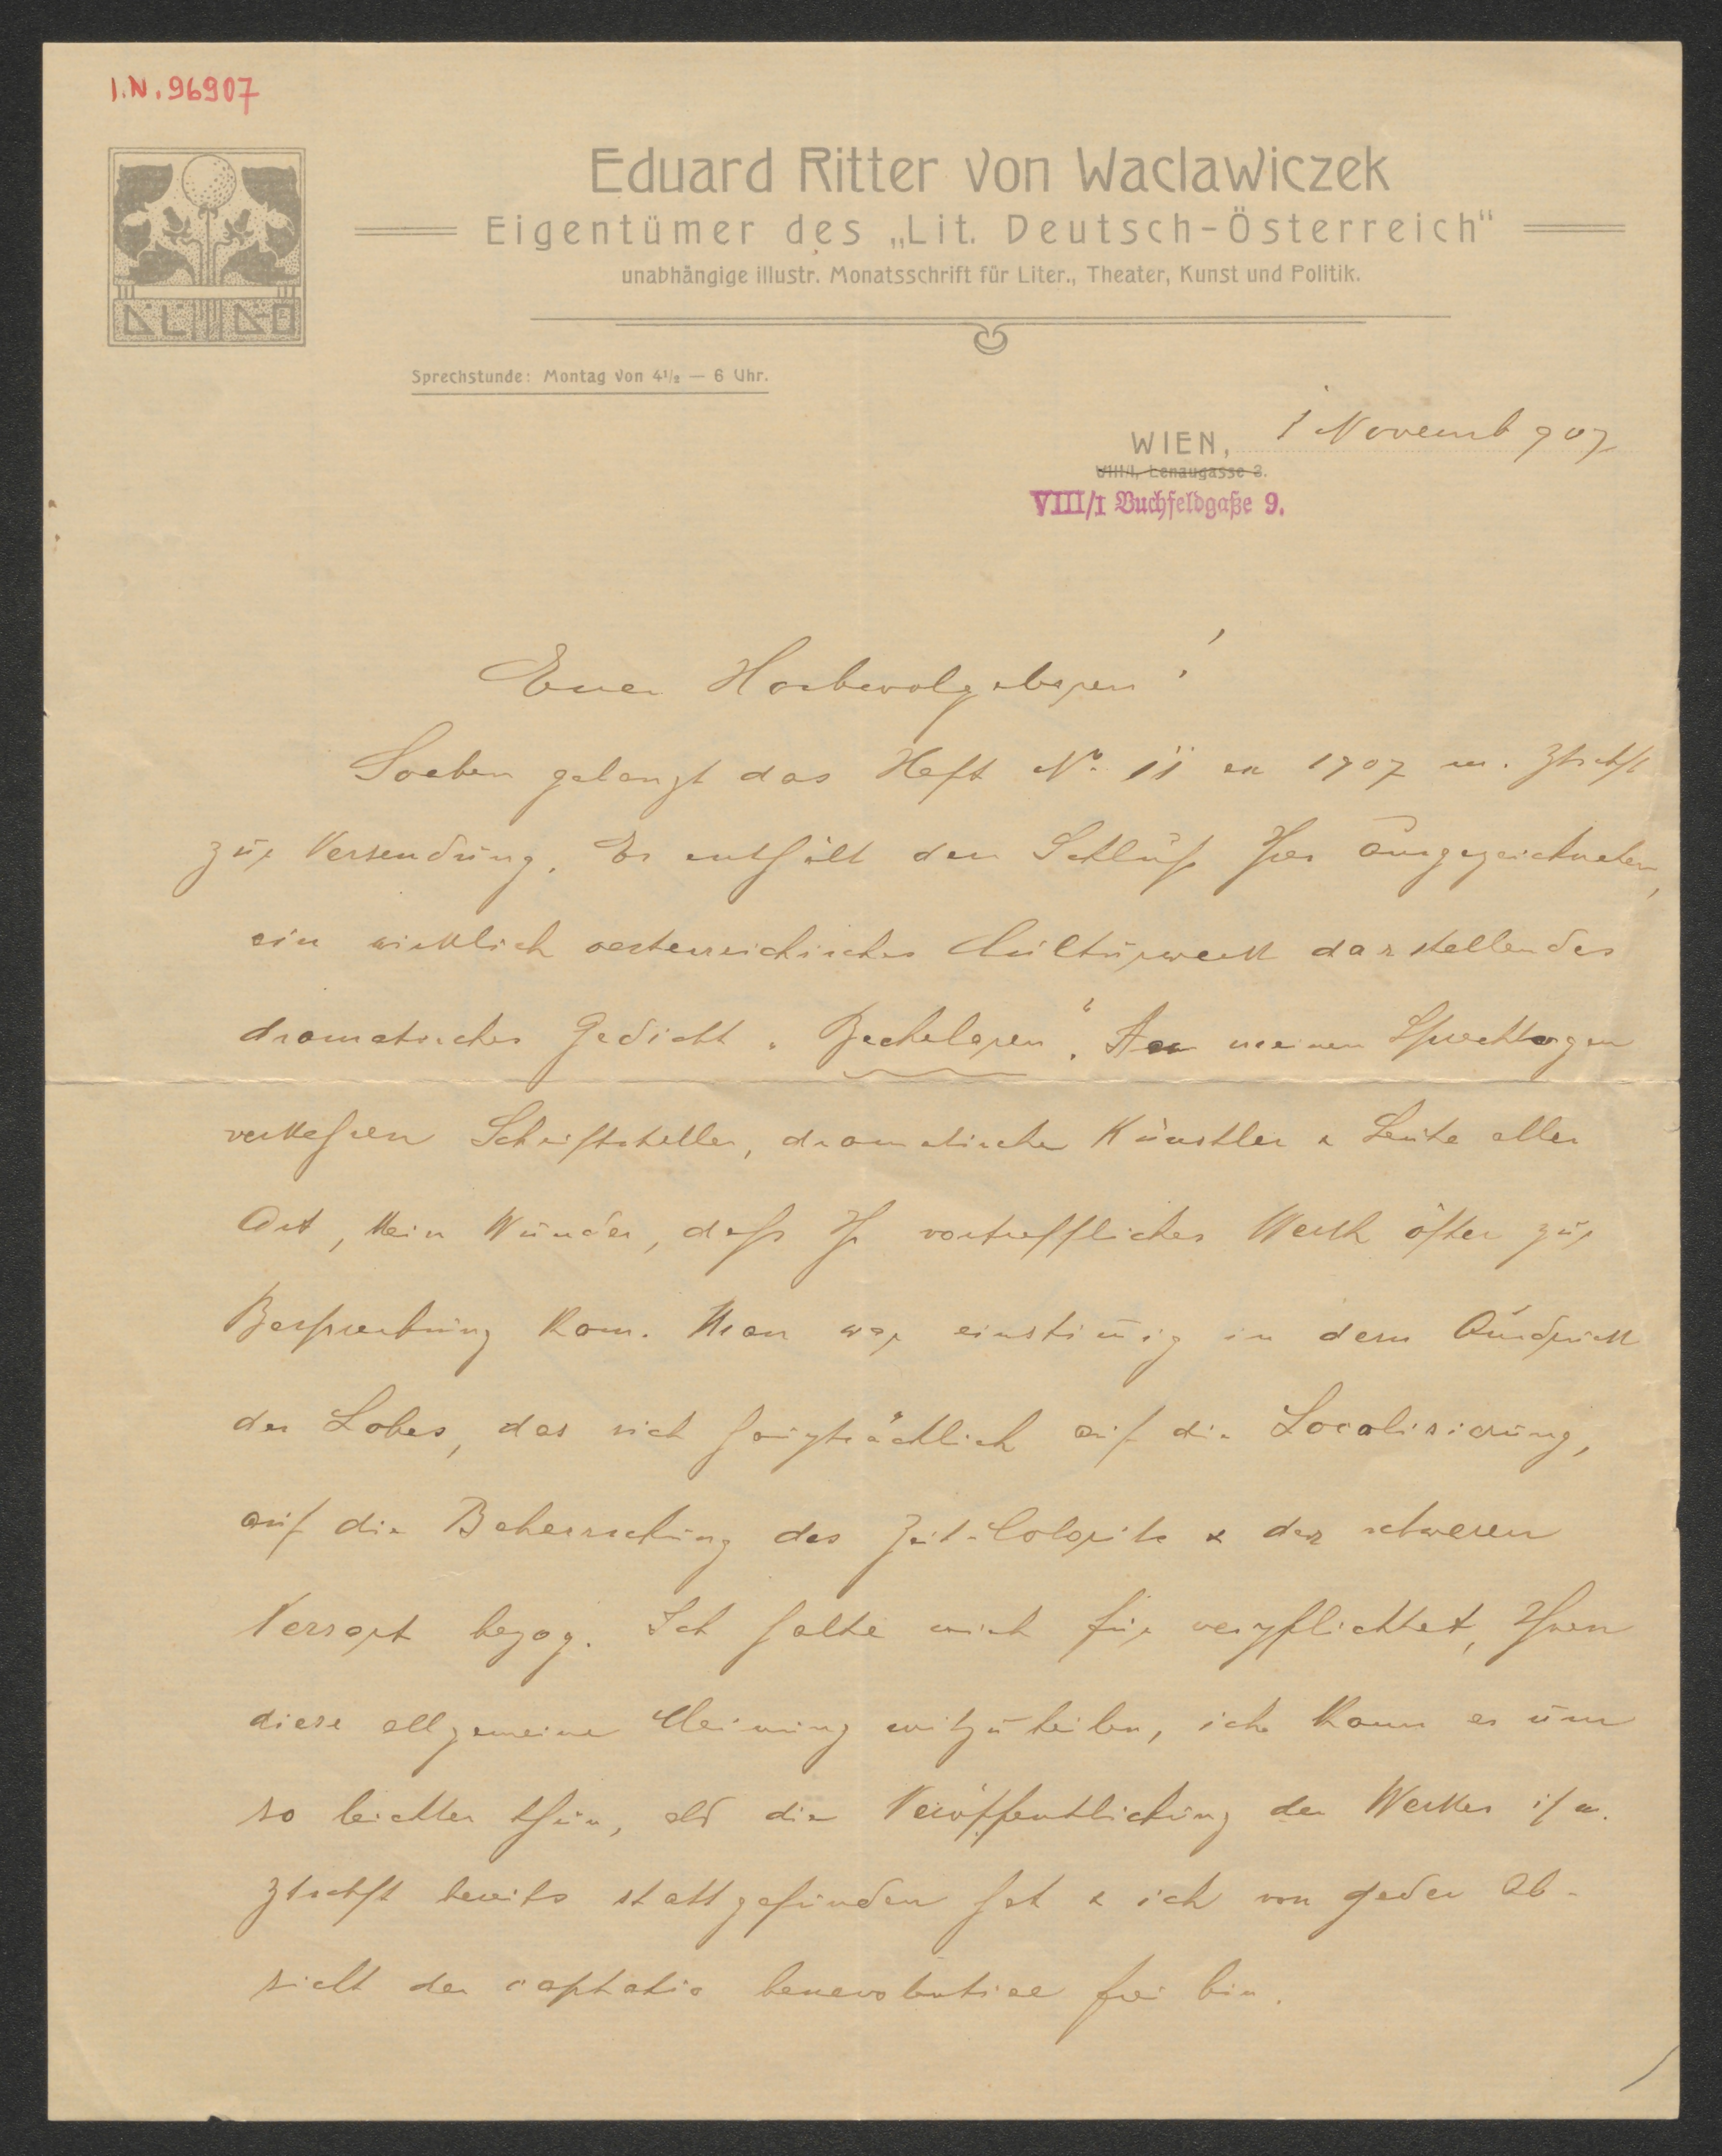 I.N. 96907
Eduard Ritter von Waclawiczek
Eigentümer des „Lit. Deutsch-Österreich"
unabhängige illustr. Monatsschrift für Liter., Theater, Kunst und Politik.
DL D-Ö
Sprechstunde: Montag von 4½ — 6 Uhr.
WIEN, 1 Novemb 907
VIII/1, Lenaugasse 3.
VIII/1 Buchfeldgaße 9.
Euer Hochwolgeboren!
Soeben gelangt das Heft No. 11 ex 1907 m. Ztschft
zur Versendung. Es enthält den Schluß Ihres ausgezeichneten,
ein wirklich oesterreichisches Culturwerk darstellendes
dramatisches Gedicht „Bechelaren". An meinen Sprechtagen
verkehren Schriftsteller, dramatische Künstler & Leute aller
Art, kein Wunder, daß Ihr vortreffliches Werk öfter zur
Besprechung kam. Man war einstimig in dem Ausdruck
des Lobes, das sich hauptsächlich auf die Localisierung,
auf die Beherrschung des Zeit-Colorits & der schweren
Versart bezog. Ich halte mich für verpflichtet, Ihnen
diese allgemeine Meinung mitzuteilen, ich kann es um
so leichter thun, als die Veröffentlichung des Werkes i/m.
Ztschft bereits stattgefunden hat & ich von jeder Ab-
sicht der captatio benevolentiae frei bin.